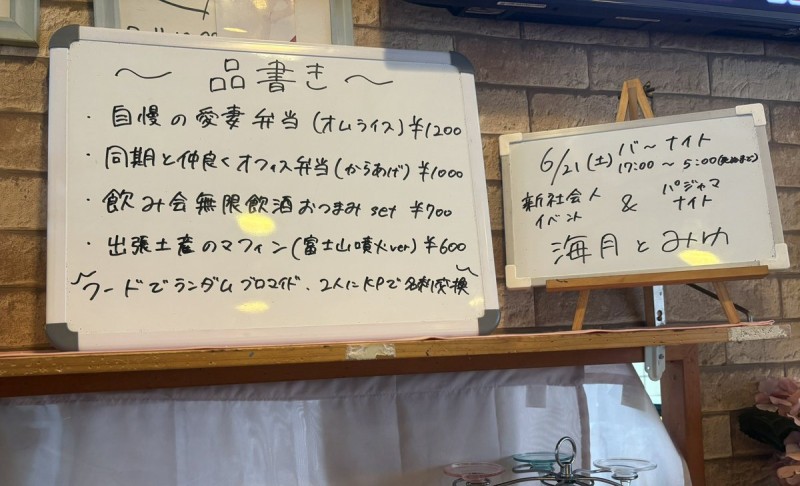 ～ 品書き ～
・自慢の愛妻弁当(オムライス)¥1200
・同期と仲良くオフィス弁当(からあげ)¥1000
・飲み会無限飲酒おつまみset ¥700
・出張土産のマフィン(富士山噴火ver)¥600
フードでランダムブロマイド、2人にKPで名刺交換
6/21(土) バーナイト
17:00～5:00
新社会人 & パジャマ
イベント ナイト
海月とみゆ